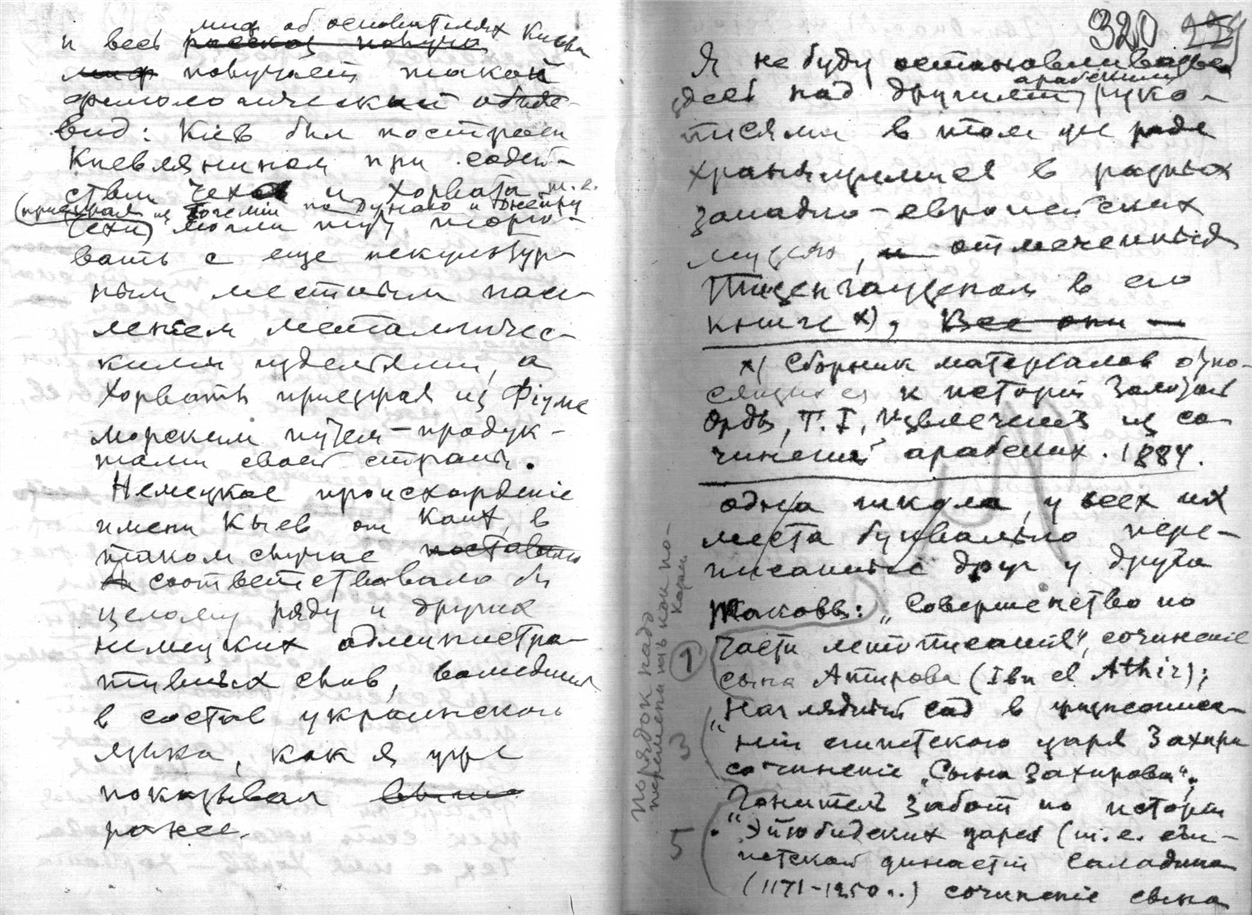 миф об основателях Киева
и весь рассказ
миф получает такой
вид: Киев был построен
Киевлянином при содей-
ствии Чеха и Хорвата т. е.
(приезжая из Богемии по Дунаю и Днепру
Чехи) могли тут торго-
вать с еще некультур-
ным местным насе-
лением металличес-
кими изделиями, а
Хорваты приезжая из Фіуме
морским путем – продук-
тами своей страны.
Немецкое происхожденіе
имени Кыев от в
таком случае
А соответствовало бы
целому ряду и других
немецких администра-
тивных слов, вошедших
в состав украинскаго
языка, как я уже
показывал выше
ранее.
320
Я не буду останавливаться
арабскими
здесь над другими руко-
писями в том же роде
хранящимися в разных
западно-европейских
музеях, и отмеченных
Тизенгаузеном в его
книге х), Все они —
х) Сборник материалов отно-
сящихся к истории Золотой
Орды, Т. I, Извлечения из со-
чинений арабских. 1884.
одна школа, у всех их
места буквально пере-
писанные друг у друга
Таковы: „Совершенство по
части летописания", сочинение
сына Атирова (Ibn el Athir);
"Наглядный сад в жизнеописа-
нии египетского царя Захира
сочинение „Сына Захирова",
"Гонитель забот по истории
Эйюбидских царей (т. е. еги-
петской династии Саладина
(1171–1250 г.) сочинение сына
Порядок надо
переменить как по-
казан
1
3
5